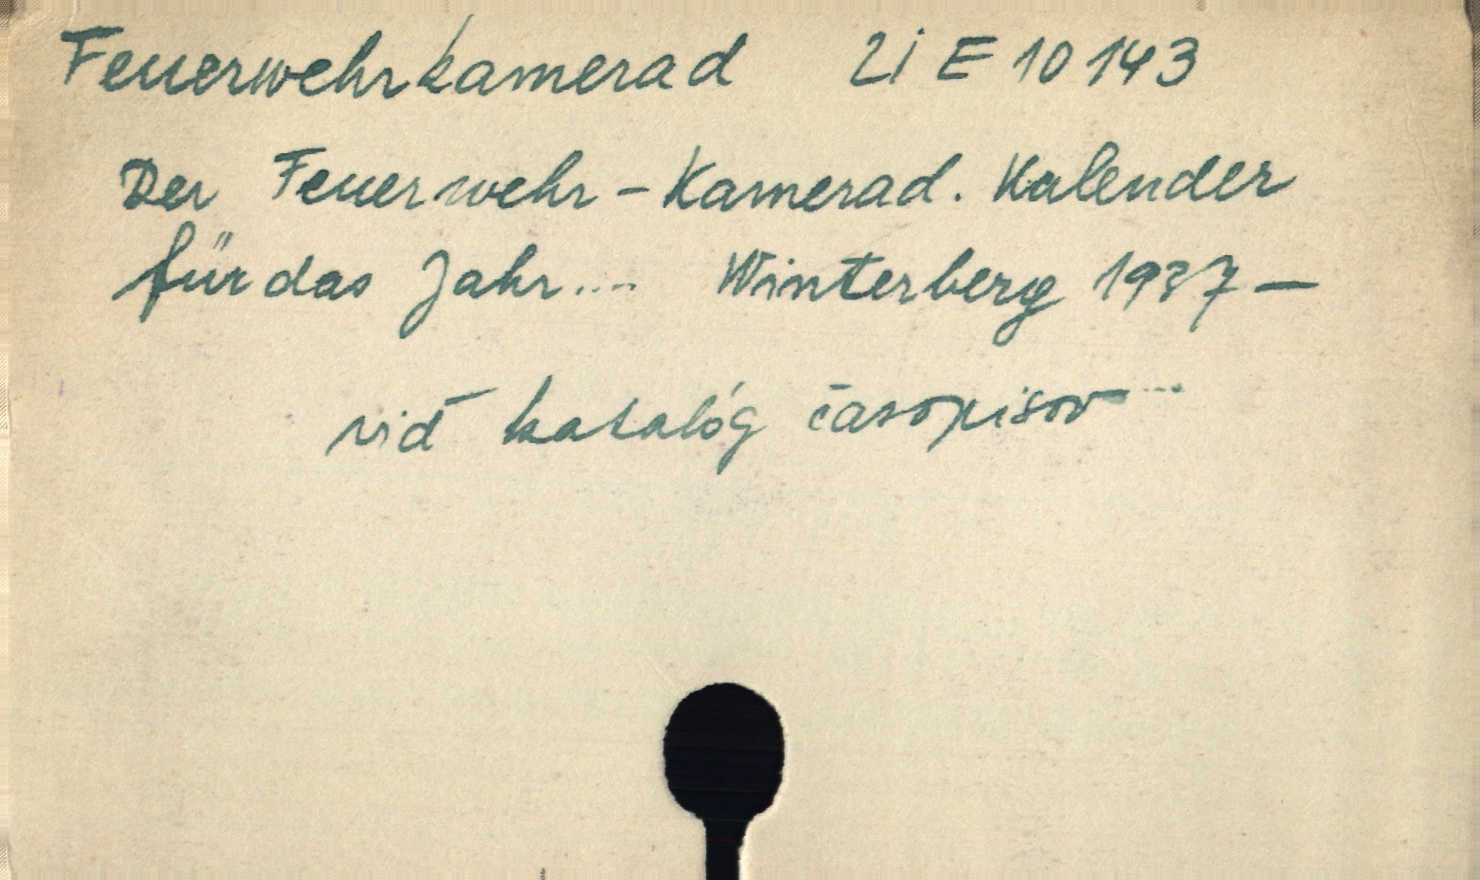 Feuerwehrkamerad Zi E 10143
Der Feuerwehr-Kamerad. Kalender
für das Jahr.... Winterberg 1937—
viď katalóg časopisov...